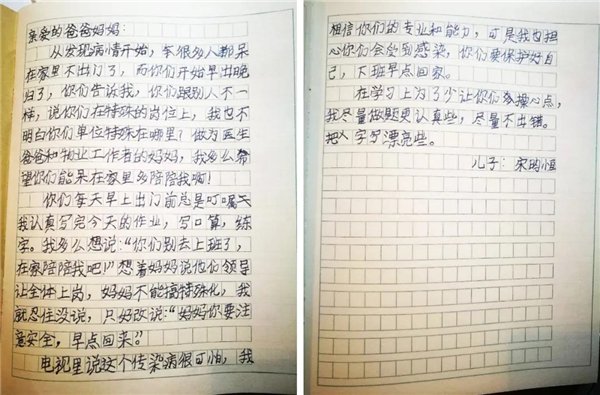 亲爱的爸爸妈妈：
从发现病情开始，年很多人都呆
在家里不出门了，而你们开始早出晚
归了，你们告诉我，你们跟别人不一
样，说你们在特殊的岗位上，我也不
明白你们单位特殊在哪里？做为医生
爸爸和物业工作者的妈妈，我多么希
望你们能呆在家里多陪陪我啊！
你们每天早上出门前总是叮嘱
我认真写完今天的作业，写口算，练
字。我多么想说：“你们别去上班了，
在家陪陪我吧！”想着妈妈说他们领导
让全体上岗，妈妈不能搞特殊化，我
就忍住没说，只好改说：“妈妈你要注
意安全，早点回来。”
电视里说这个传染病很可怕，我
相信你们的专业和能力，可是我也担
心你们会受到感染，你们要保护好自
己，下班早点回家。
在学习上为了少让你们多操心点，
我尽量做题更认真些，尽量不出错。
把字写漂亮些。
儿子：宋昀恒